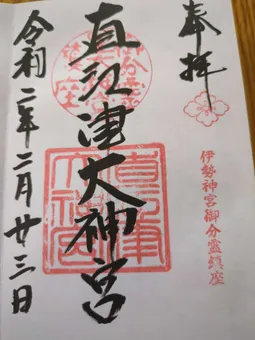 奉拝
伊勢神宮御分霊鎮座
直江津大神宮
令和二年二月廿三日